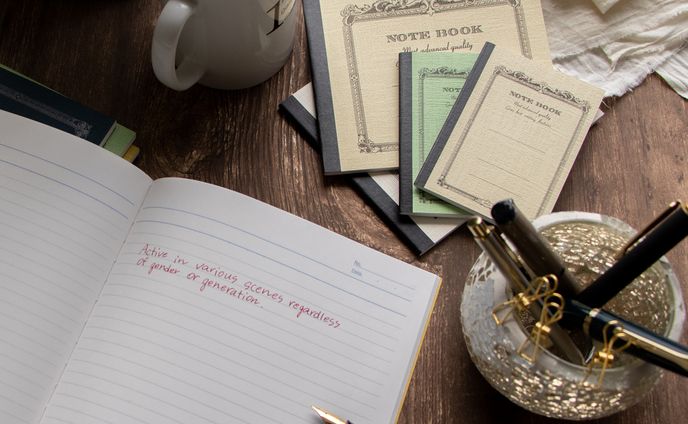 NOTE BOOK
Most advanced quality
NOTE BOOK
Most advanced quality
Gives best writing features
No.
Date
Active in various scenes regardless
of gender or generation.